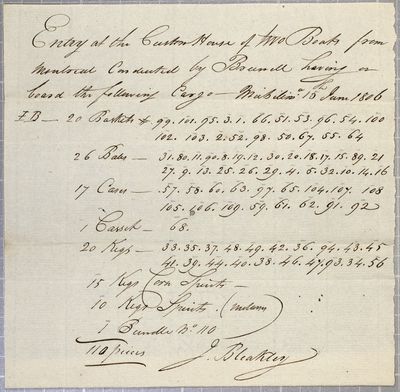 Entry at the Custom House of two Boats from
Montreal Conducted by Brunell having on
board the following Cargo — Mickilim.ª 16th June 1806
F.B — 20 Baskets # 99. 101. 95. 3. 1. 66. 51. 53. 96. 54. 100
102. 103. 2. 52. 98. 50. 67. 55. 64
26 Bales — 31. 80. 11. 90. 8. 19. 12. 30. 20. 18. 17. 15. 89. 21
27. 9. 13. 25. 26. 29. 4. 5. 32. 10. 14. 16
17 Cases — 57. 58. 60. 63. 97. 65. 104. 107. 108
105. 106. 109. 59. 61. 62. 91. 92
1 Cassek — 68.
20 Kegs — 33. 35. 37. 48. 49. 42. 36. 94. 43. 45
41. 39. 44. 40. 38. 46. 47. 93. 34. 56
15 Kegs Corn Spirits —
10 Kegs Spirits
1 Bundle No. 110
110 pieces
J. Bleakley